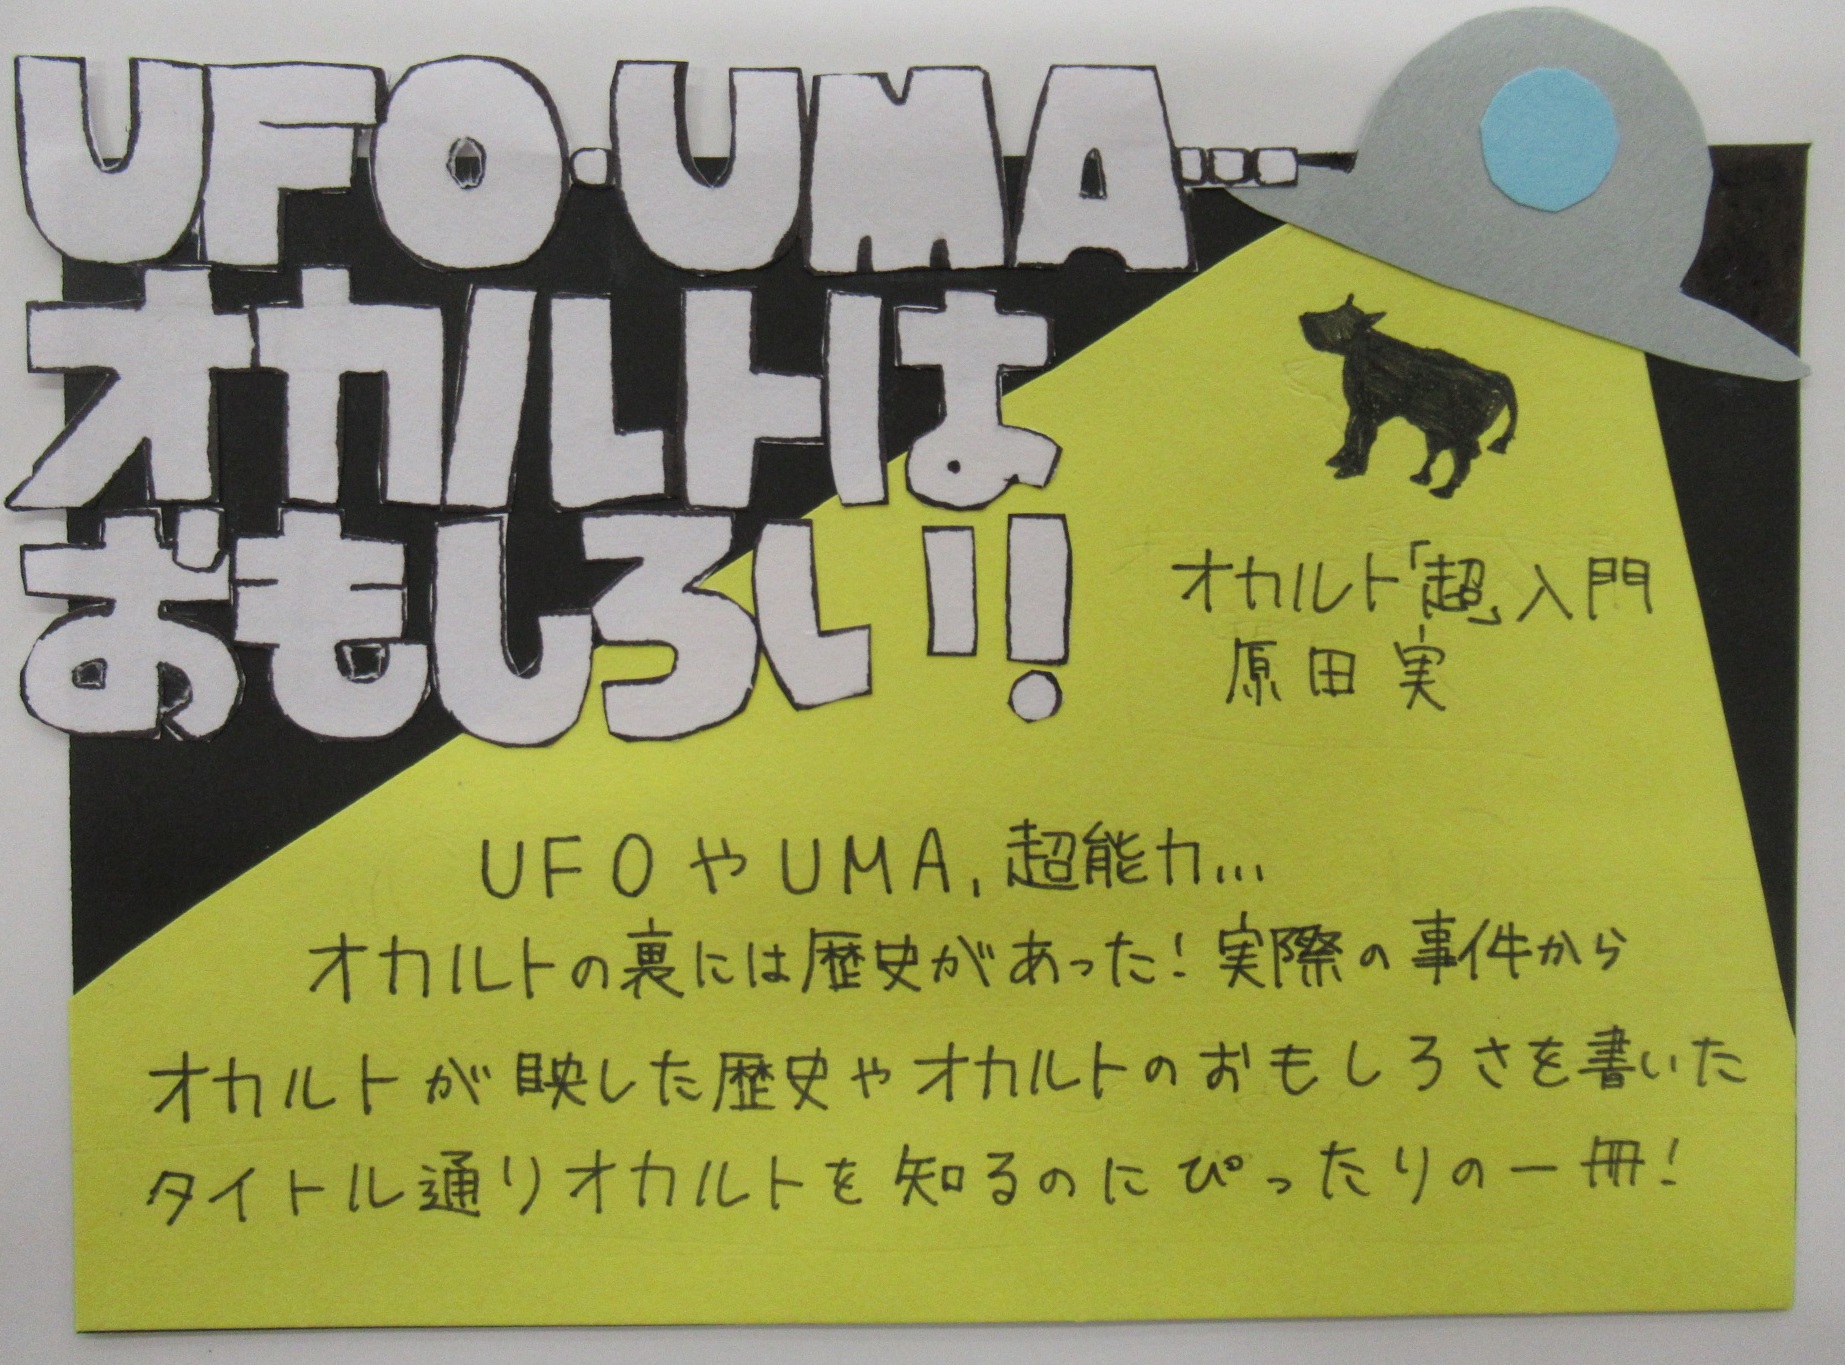 UFO・UMA…
オカルトは
おもしろい!!
オカルト「超」入門
原田実
UFOやUMA,超能力…
オカルトの裏には歴史があった!実際の事件から
オカルトが映した歴史やオカルトのおもしろさを書いた
タイトル通りオカルトを知るのにぴったりの一冊!